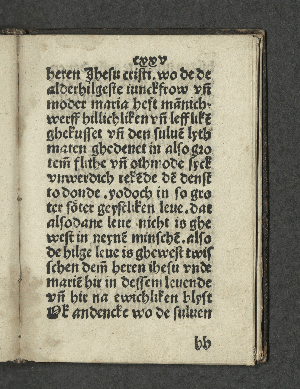 cxxv
heren Jhesu cristi. wo de de
alderhilgeste iunckfrow vñ
moder maria heft mānich-
werff hillichliken vñ leffliкē
ghekusset vñ den suluē lyth
maten ghedenet in also gro
tem̄ flithe vñ othmode syck
vnwerdich rekēde dē denst
to donde. yodoch in so gro
ter sōter geystliken leue. dat
alsodane leue nicht is ghe
west in neynē minschē. also
de hilge leue is ghewest twis
schen dem̄ heren ihesu vnde
mariē hir in dessem leuende
vñ hir na ewichliken blyst
Ok andencke wo de suluen
bb